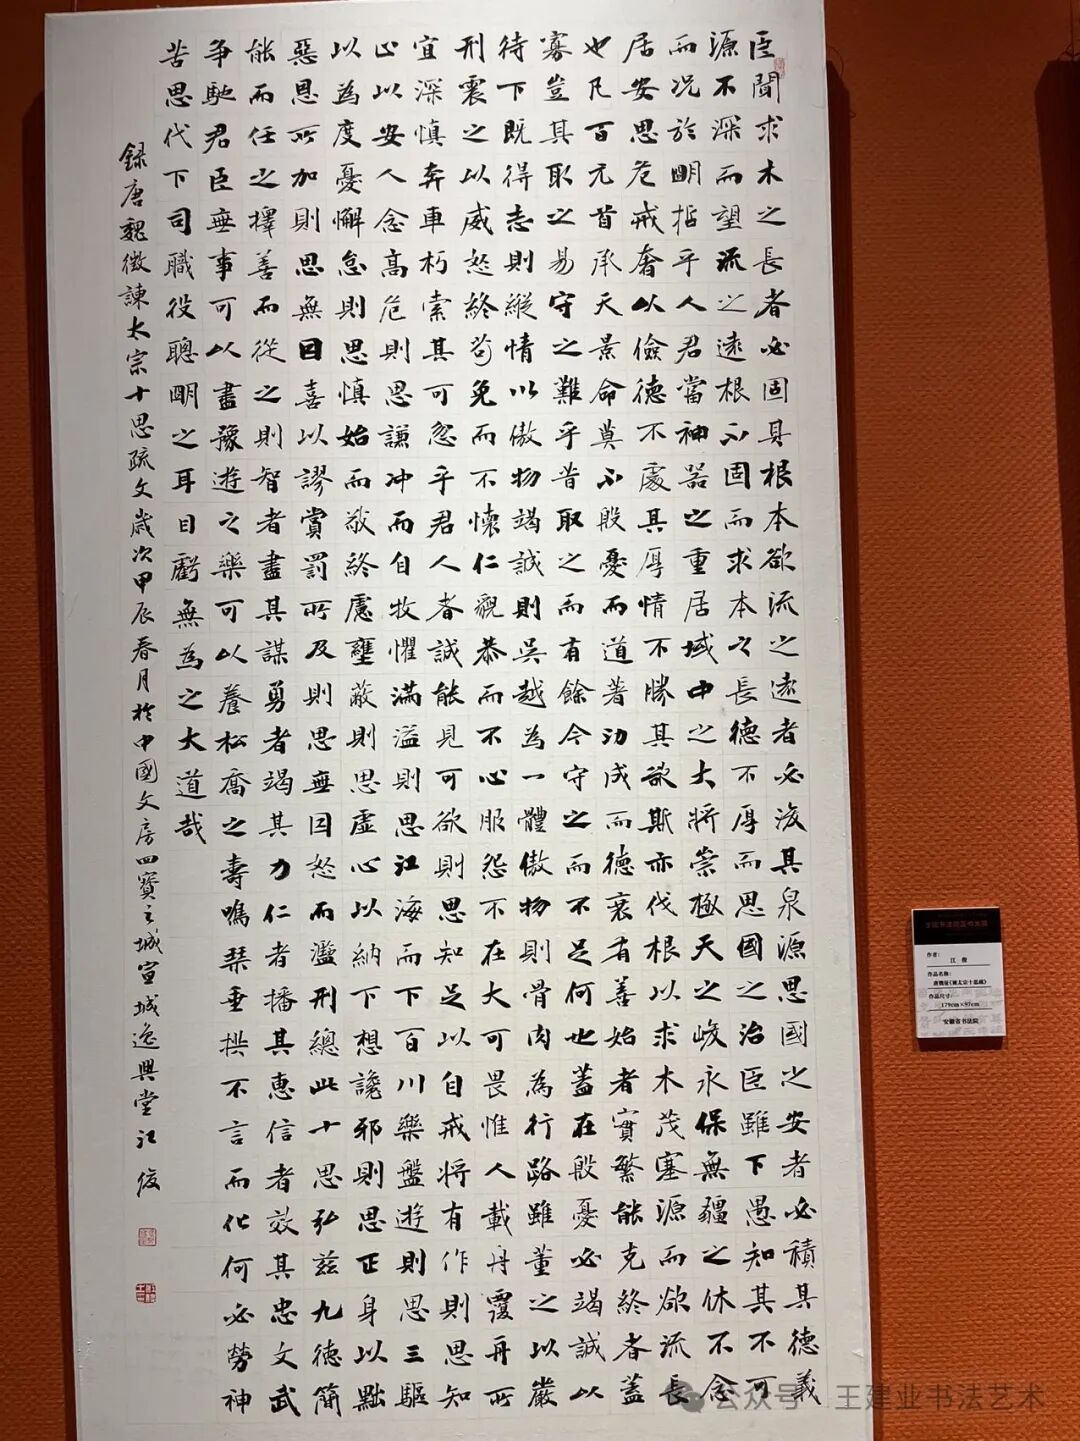 臣聞求木之長者必固其根本欲流之遠者必浚其泉源思國之安者必積其德義
源不深而望流之遠根不固而求本之長德不厚而思國之治臣雖下愚知其不可
而況於明哲乎人君當神器之重居域中之大將崇極天之峻永保無疆之休不念
居安思危戒奢以儉德不處其厚情不勝其欲斯亦伐根以求木茂塞源而欲流長
也凡百元首承天景命莫不殷憂而道著功成而德衰有善始者實繁能克終者蓋
寡豈其取之易守之難乎昔取之而有餘今守之而不足何也蓋在殷憂必竭誠以
待下既得志則縱情以傲物竭誠則吳越為一體傲物則骨肉為行路雖董之以嚴
刑震之以威怒終苟免而不懷仁貌恭而不心服怨不在大可畏惟人載舟覆舟所
宜深慎奔車朽索其可忽乎君人者誠能見可欲則思知足以自戒將有作則思知
止以安人念高危則思謙沖而自牧懼滿溢則思江海而下百川樂盤遊則思三驅
以為度憂懈怠則思慎始而敬終慮壅蔽則思虛心以納下想讒邪則思正身以黜
惡恩所加則思無因喜以謬賞罰所及則思無因怒而濫刑總此十思弘茲九德簡
能而任之擇善而從之則智者盡其謀勇者竭其力仁者播其惠信者效其忠文武
爭馳君臣無事可以盡豫遊之樂可以養松喬之壽鳴琴垂拱不言而化何必勞神
苦思代下司職役聰明之耳目虧無為之大道哉
録唐魏徵諫太宗十思疏文歲次甲辰春月於中國文房四寶之城宣城逸興堂江俊
作者：
江 俊
作品名称：
唐魏征《谏太宗十思疏》
作品尺寸：
179cm×97cm
安徽省书法院
公众号 · 王建业书法艺术